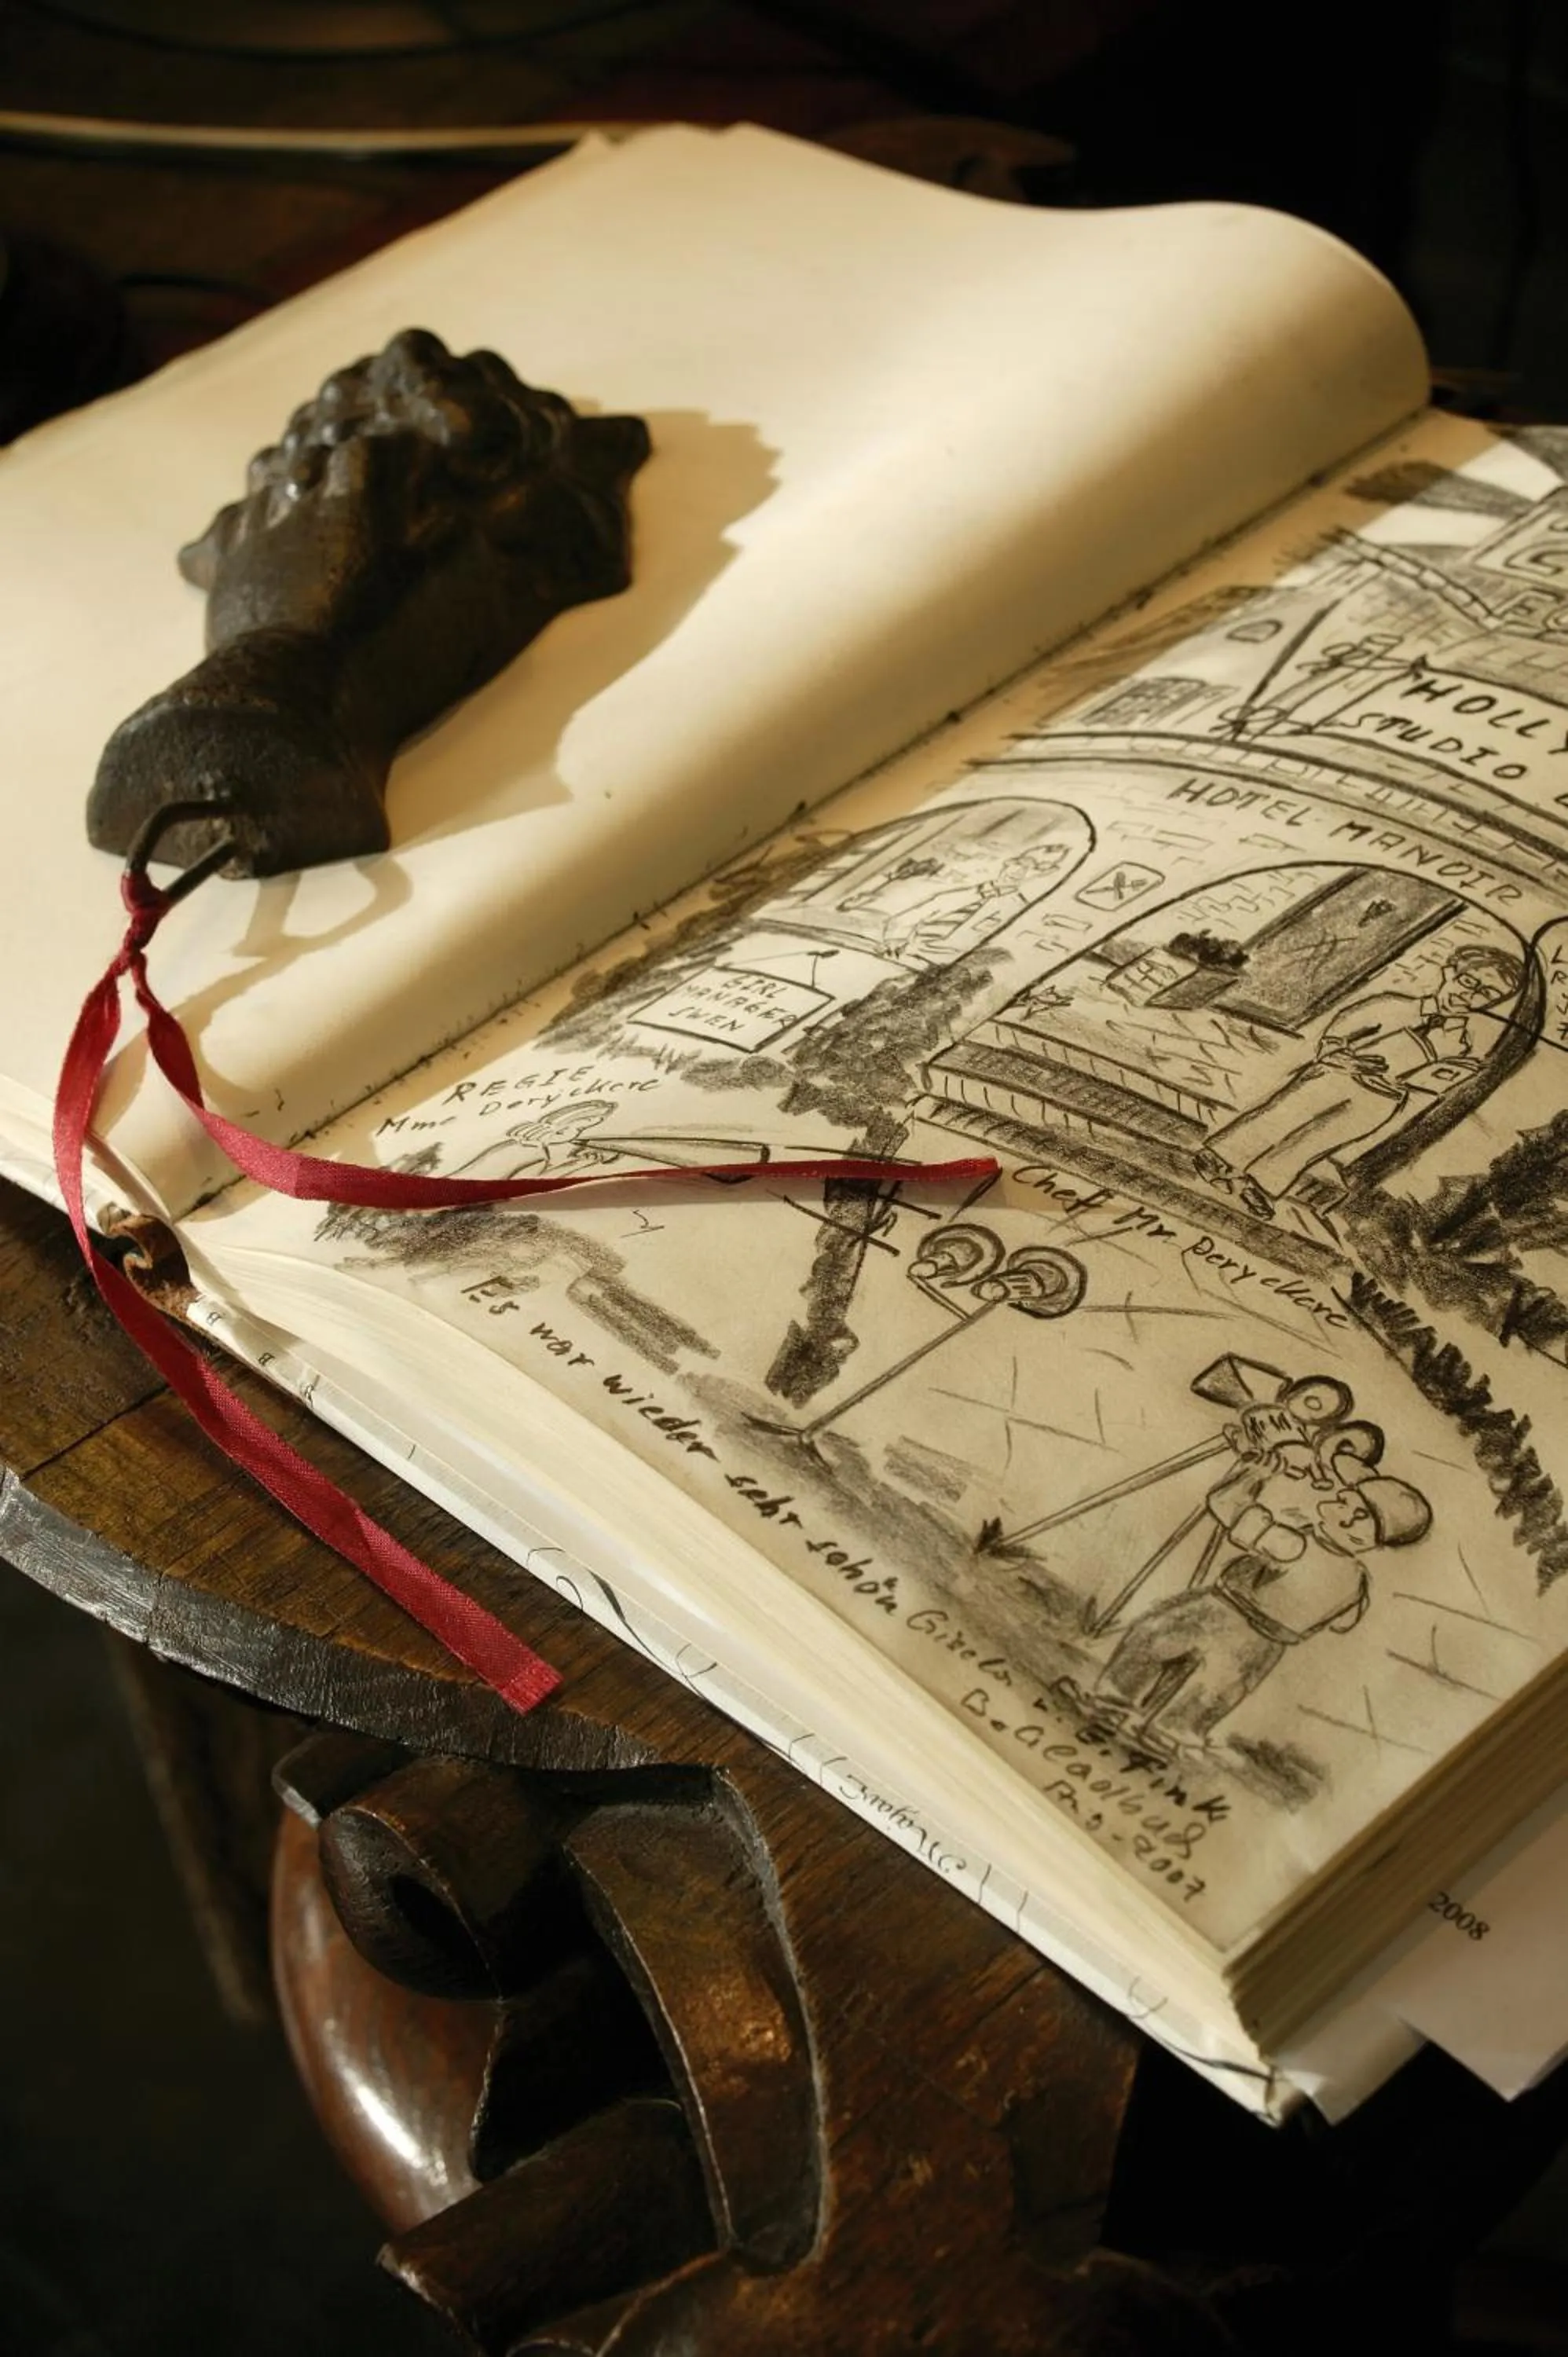 HOLLY
STUDIO
HOTEL MANOIR
GIRL
MANAGER
SWEN
REGIE
Mme Deryckere
Chef Mr. Deryckere
Es war wieder sehr schön
Gisela u. E. Fink
2007
2008